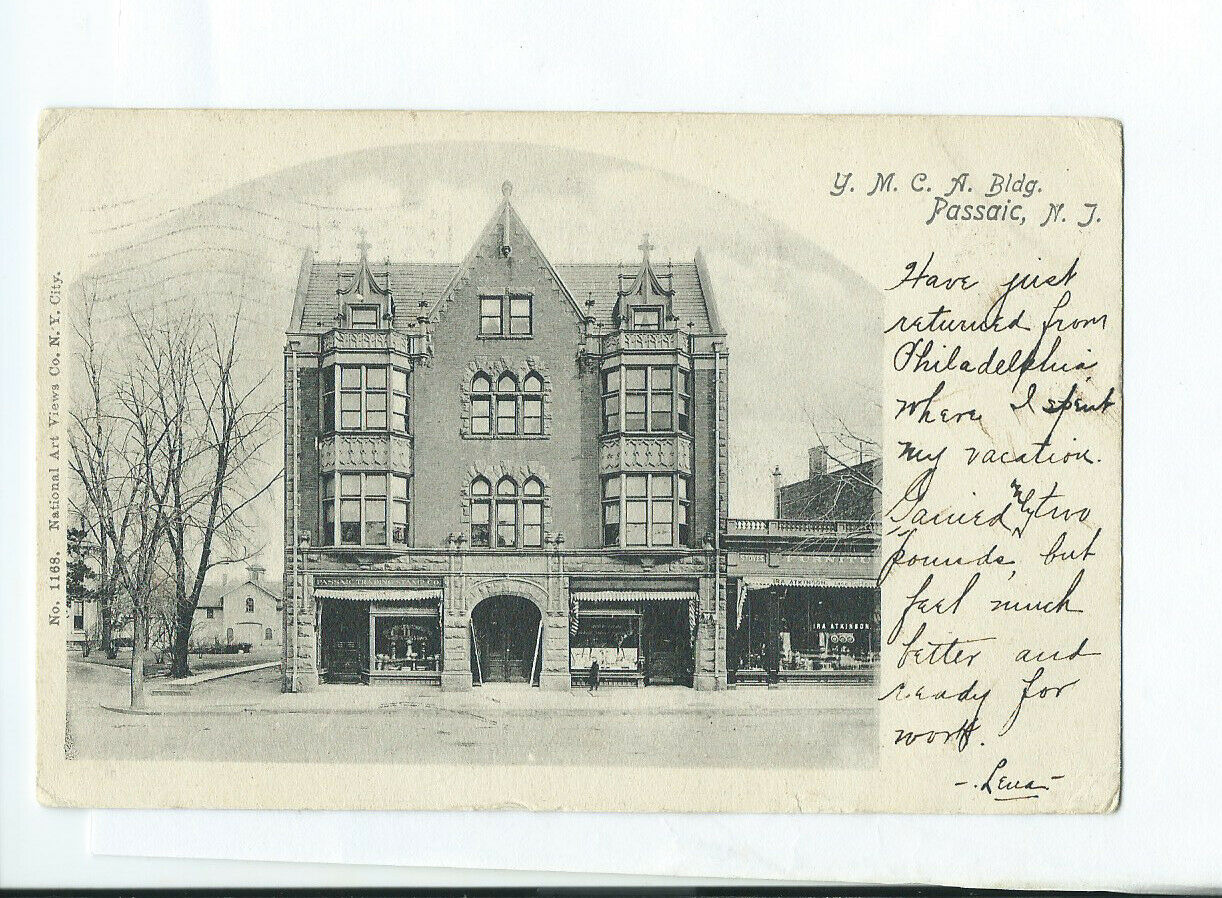 Y. M. C. A. Bldg.
Passaic, N. J.
Have just
returned from
Philadelphia
where I spent
my vacation.
Gained only two
pounds, but
feel much
better and
ready for
work.
-. Lena -
No. 1168. National Art Views Co. N. Y. City.
IRA ATKINSON
IRA ATKINSON